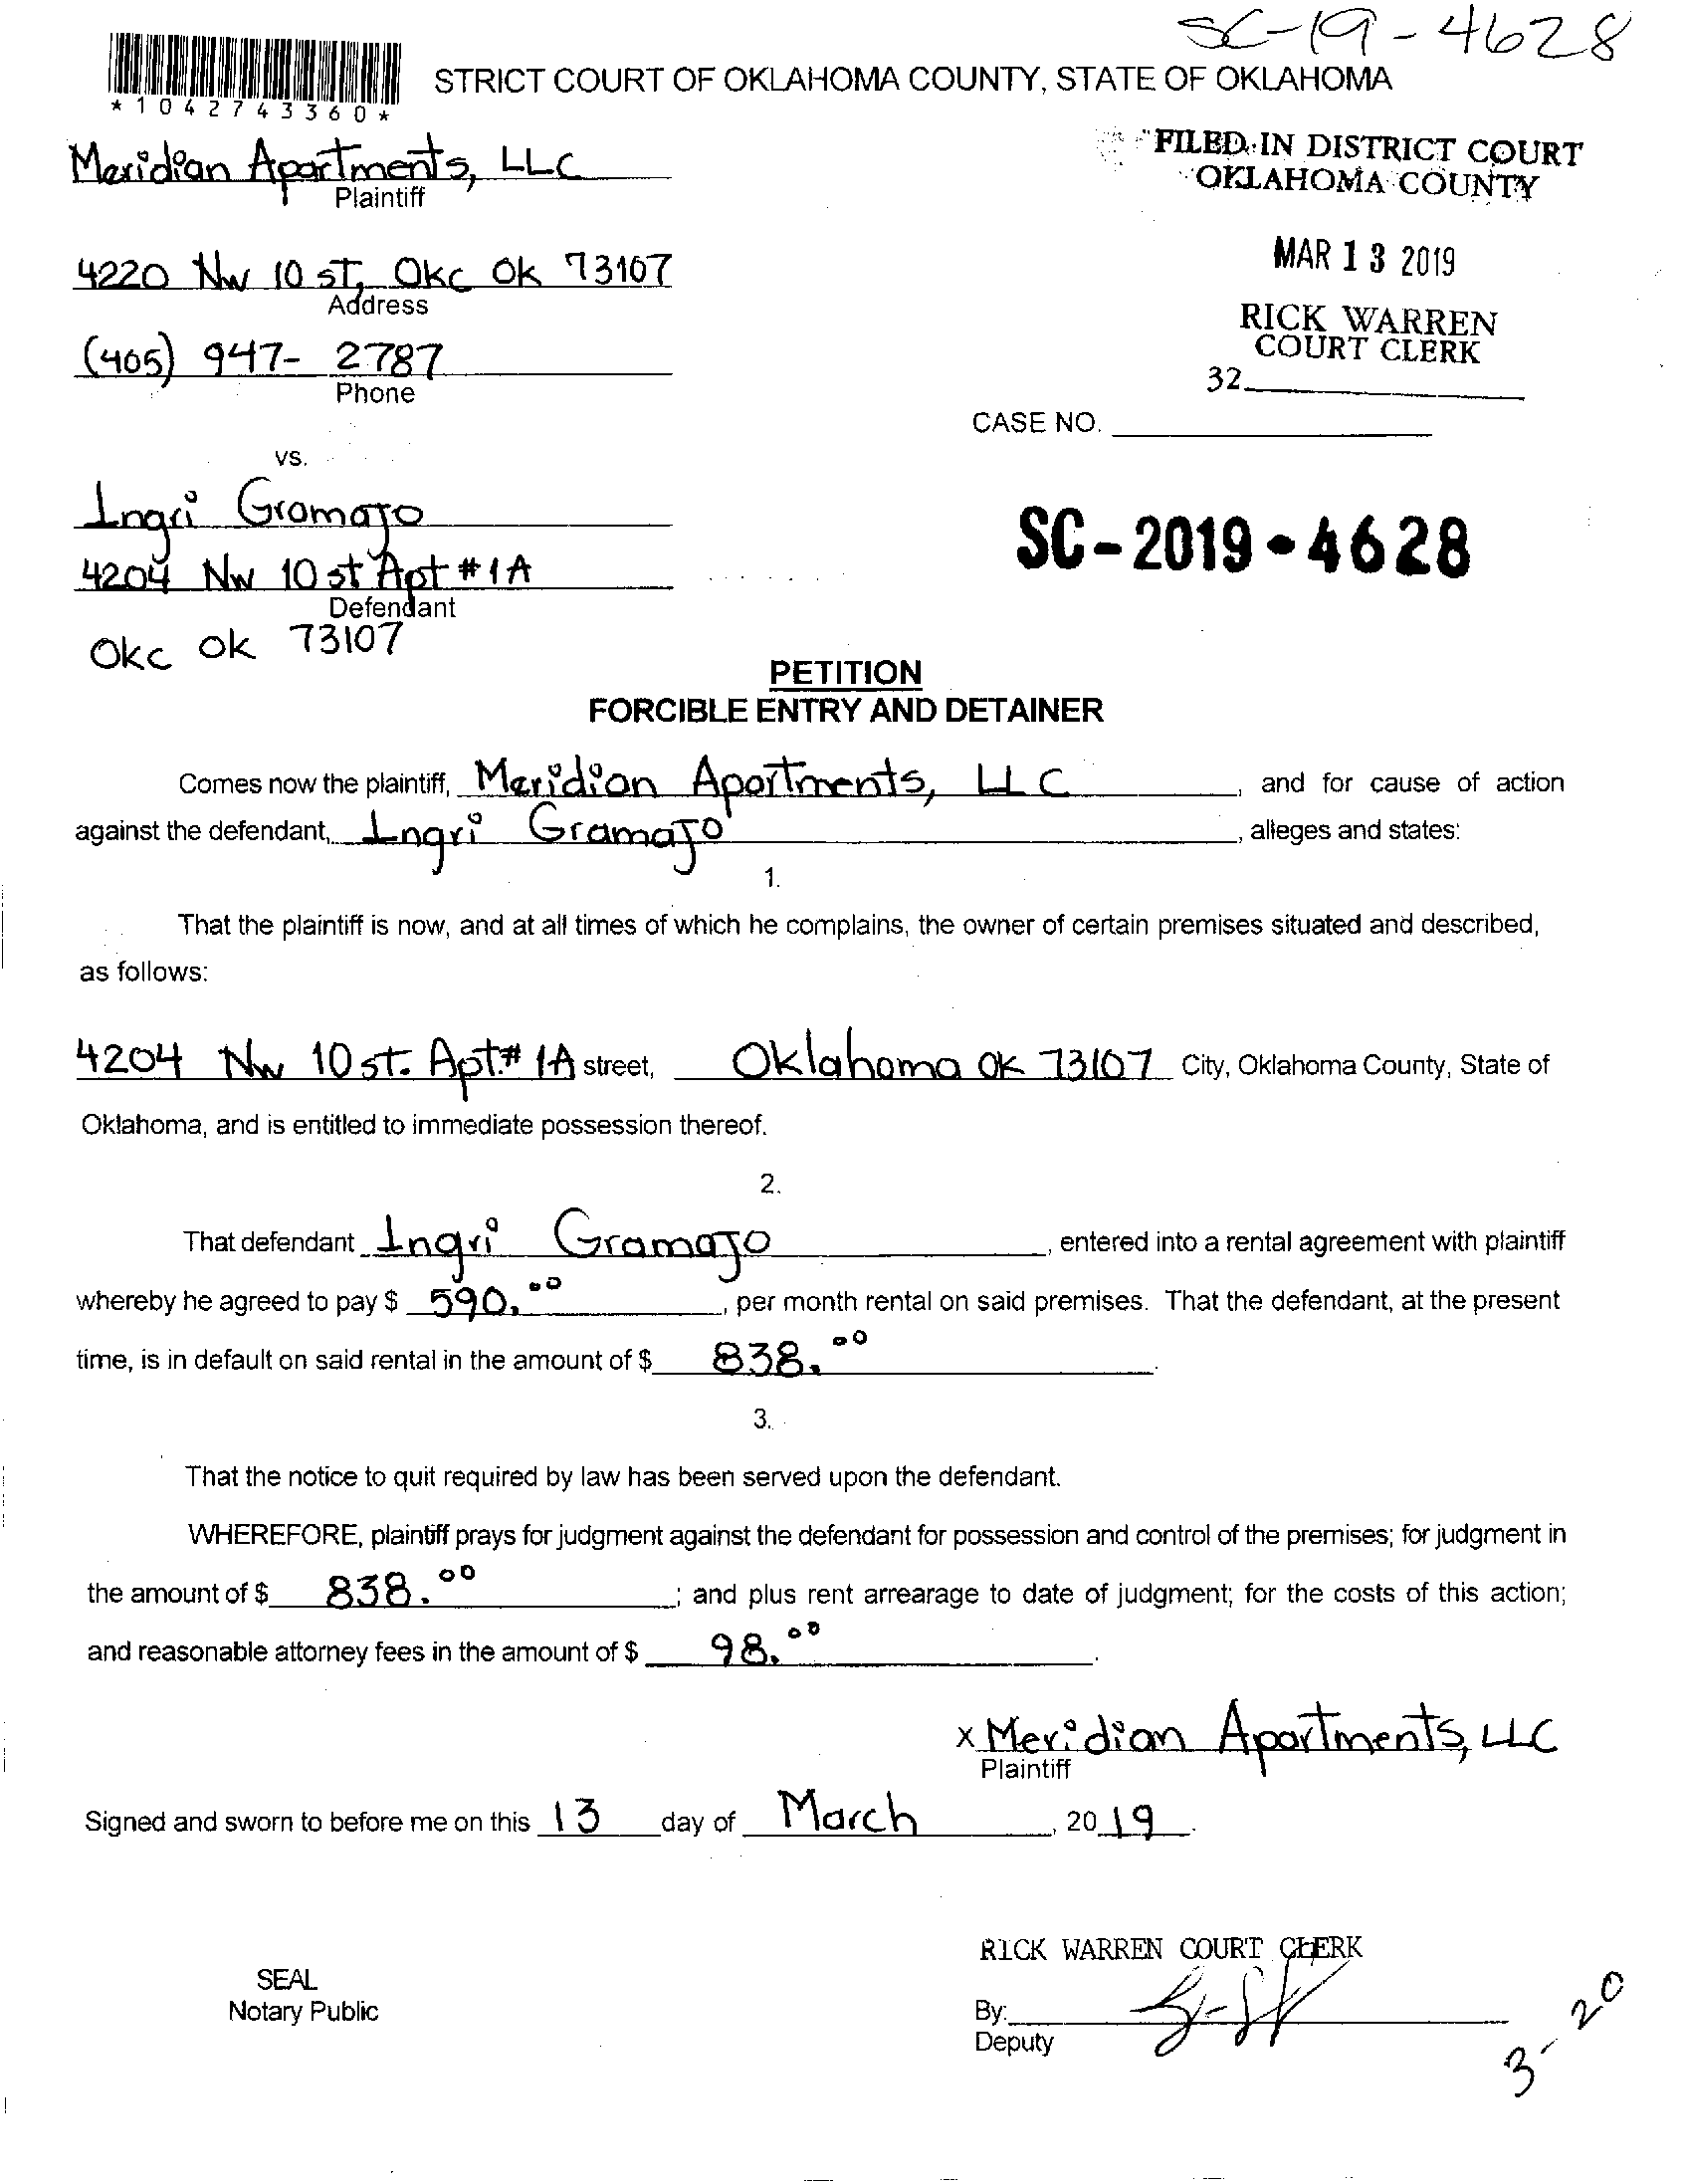 SC-19-4628
*1042743360*
STRICT COURT OF OKLAHOMA COUNTY, STATE OF OKLAHOMA
FILED IN DISTRICT COURT
OKLAHOMA COUNTY
Meridian Apartments, LLC
Plaintiff
MAR 13 2019
4220 NW 10 ST, OKC OK 73107
Address
RICK WARREN
COURT CLERK
(405) 947-2787
Phone
32
CASE NO.
vs.
Ingri Gramajo
SC-2019-4628
4204 NW 10 st Apt #1A
Defendant
OKC OK 73107
PETITION
FORCIBLE ENTRY AND DETAINER
Comes now the plaintiff, Meridian Apartments, LLC, and for cause of action
against the defendant, Ingri Gramajo, alleges and states:
1.
That the plaintiff is now, and at all times of which he complains, the owner of certain premises situated and described,
as follows:
4204 NW 10 st. Apt.# 1A street, Oklahoma OK 73107 City, Oklahoma County, State of
Oklahoma, and is entitled to immediate possession thereof.
2.
That defendant Ingri Gramajo, entered into a rental agreement with plaintiff
whereby he agreed to pay $ 590.00, per month rental on said premises. That the defendant, at the present
time, is in default on said rental in the amount of $ 838.00.
3.
That the notice to quit required by law has been served upon the defendant.
WHEREFORE, plaintiff prays for judgment against the defendant for possession and control of the premises; for judgment in
the amount of $ 838.00; and plus rent arrearage to date of judgment; for the costs of this action;
and reasonable attorney fees in the amount of $ 98.00.
x Meridian Apartments, LLC
Plaintiff
Signed and sworn to before me on this 13 day of March, 2019.
RICK WARREN COURT CLERK
SEAL
Notary Public
By:
Deputy
3-20